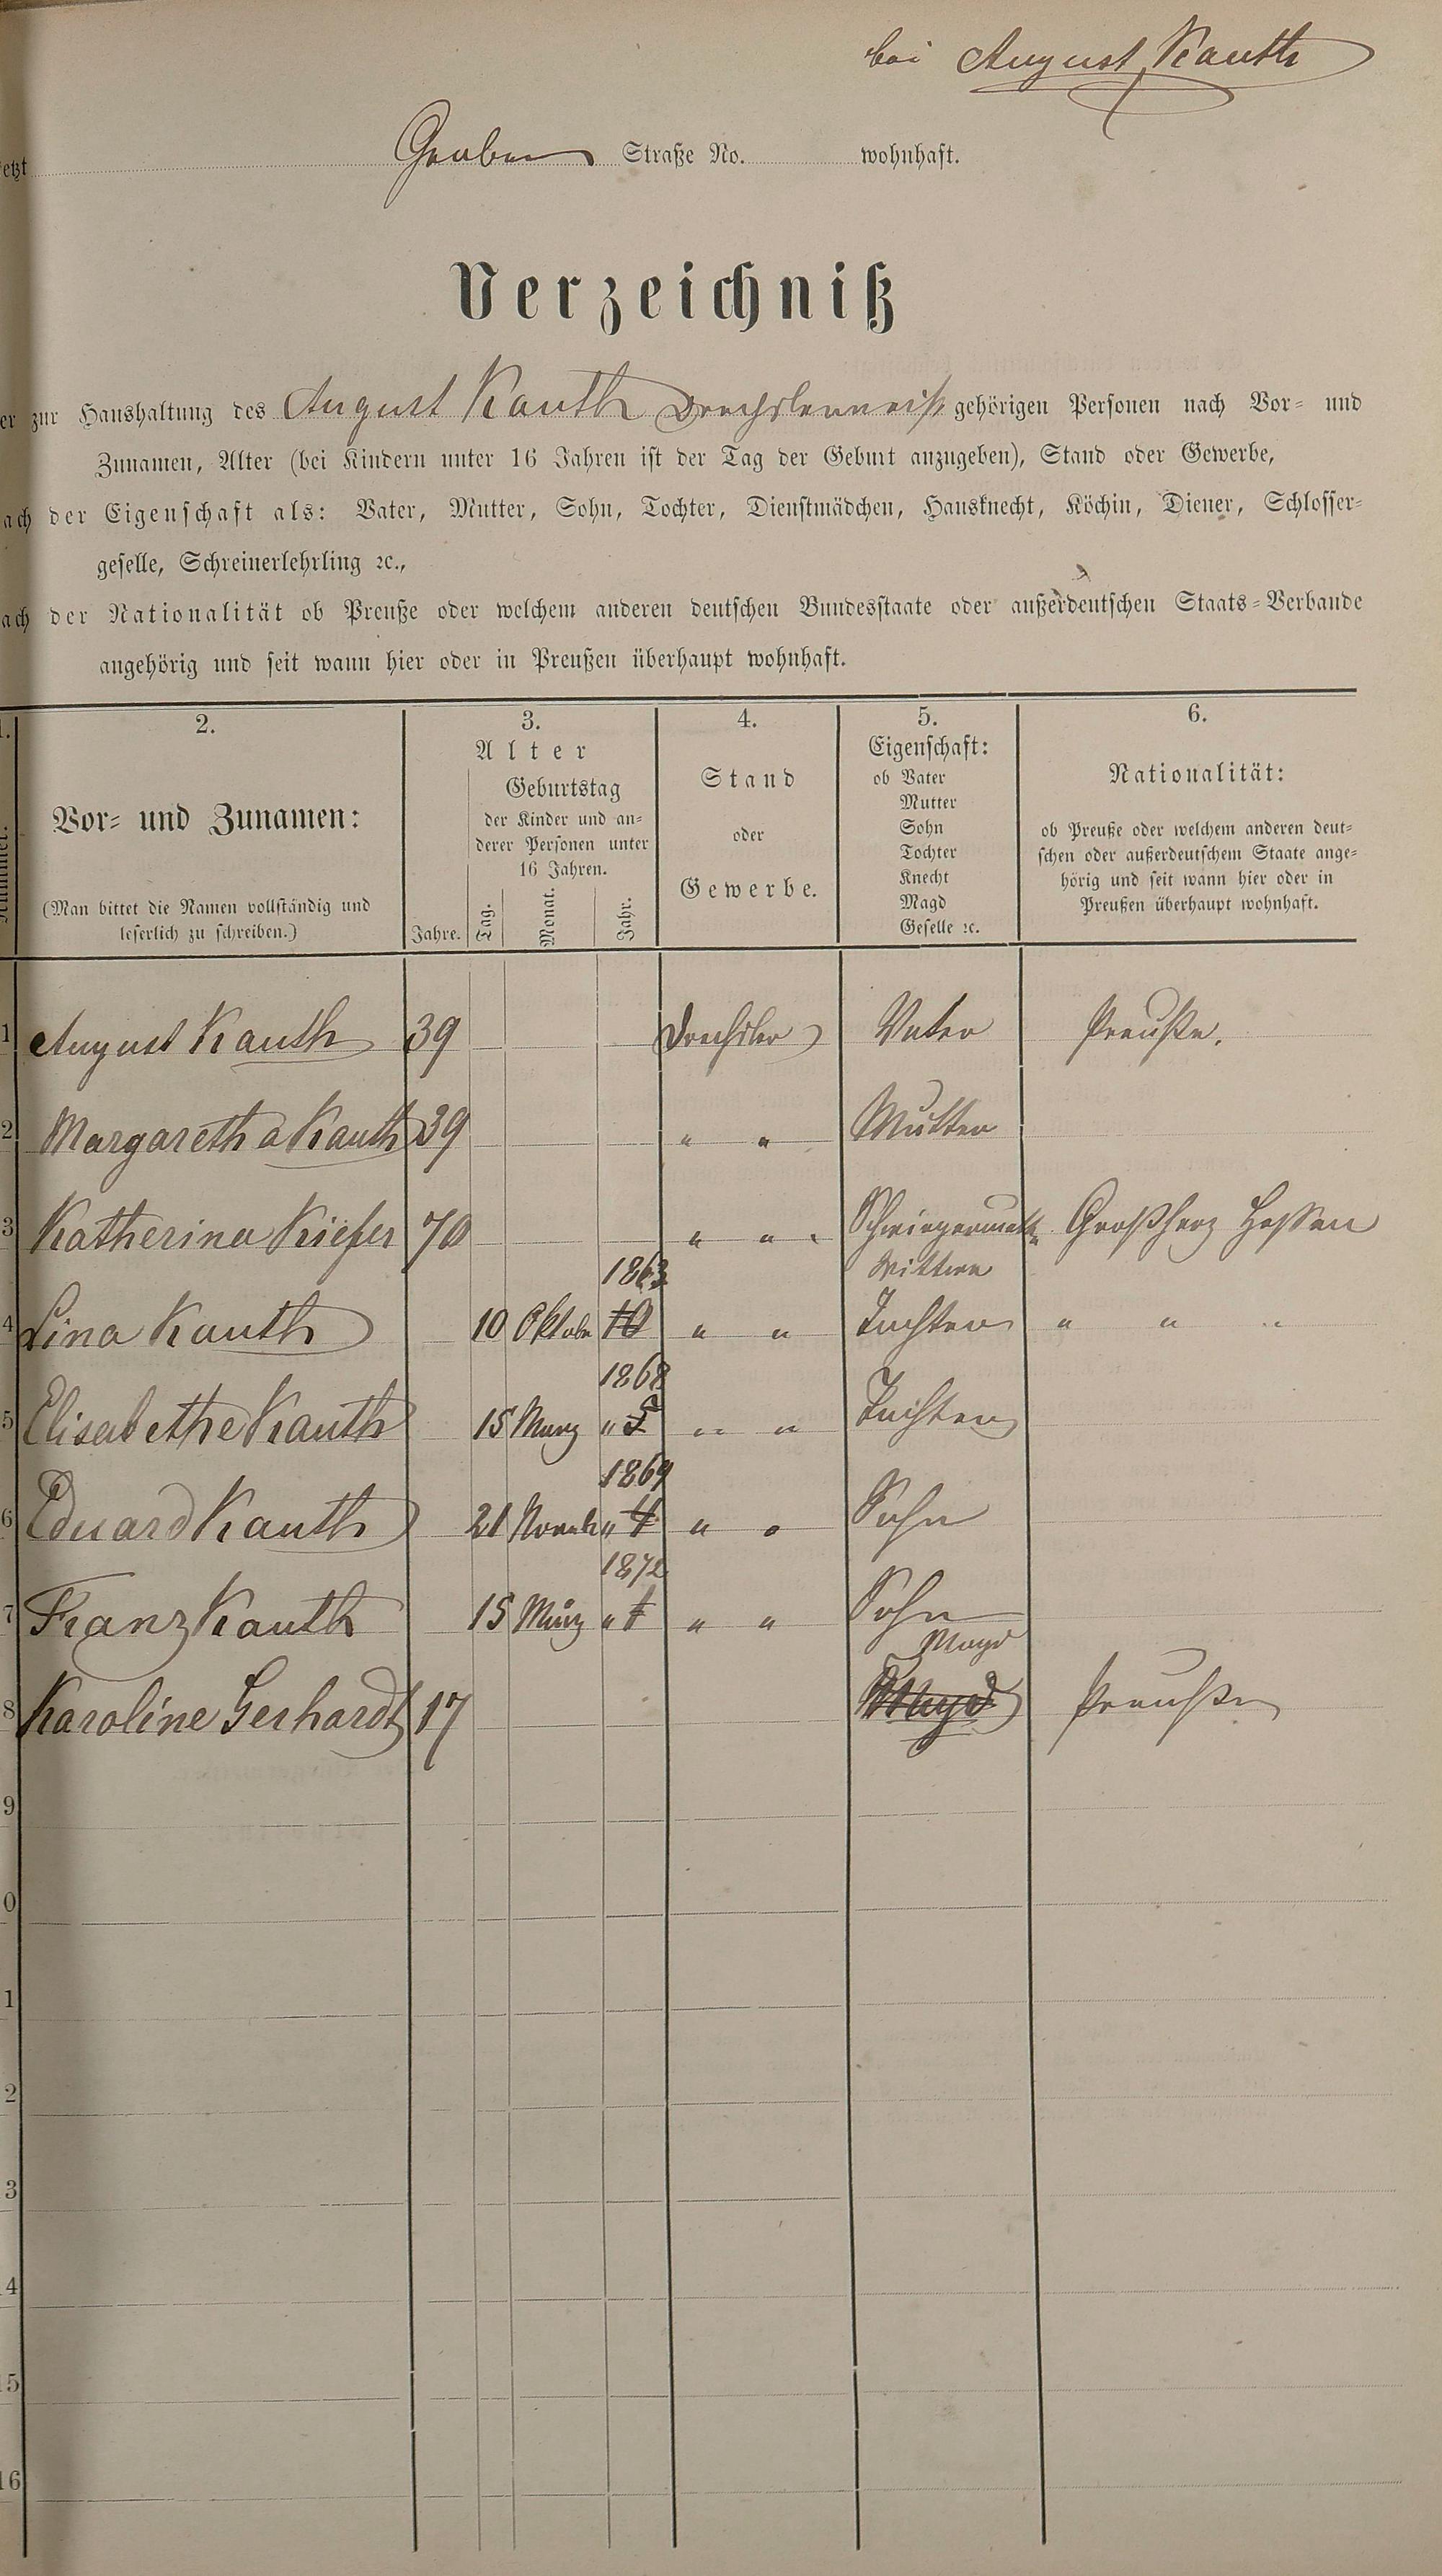 bei August Kauth
etzt Graben Straße No. wohnhaft.
Verzeichniß
er zur Haushaltung des August Kauth Drechslermeist gehörigen Personen nach Vor- und
Zunamen, Alter (bei Kindern unter 16 Jahren ist der Tag der Geburt anzugeben), Stand oder Gewerbe,
ach der Eigenschaft als: Vater, Mutter, Sohn, Tochter, Dienstmädchen, Hausknecht, Köchin, Diener, Schlosser-
geselle, Schreinerlehrling ꝛc.,
ach der Nationalität ob Preuße oder welchem anderen deutschen Bundesstaate oder außerdeutschen Staats-Verbande
angehörig und seit wann hier oder in Preußen überhaupt wohnhaft.
1.
Nummer.
2.
Vor- und Zunamen:
(Man bittet die Namen vollständig und
leserlich zu schreiben.)
3.
Alter
Geburtstag
der Kinder und an-
derer Personen unter
16 Jahren.
Jahre. Tag. Monat. Jahr.
4.
Stand
oder
Gewerbe.
5.
Eigenschaft:
ob Vater
Mutter
Sohn
Tochter
Knecht
Magd
Geselle ꝛc.
6.
Nationalität:
ob Preuße oder welchem anderen deut-
schen oder außerdeutschem Staate ange-
hörig und seit wann hier oder in
Preußen überhaupt wohnhaft.
1 August Kauth 39 Drechsler Vater Preuße.
2 Margaretha Kauth 39 " " Mutter
3 Katherina Kiefer 70 " " " Schwiegermutter Großherz Hessen
1863 Wittwe
4 Lina Kauth 10 Oktobr 10 " " Tochter " " "
1868
5 Elisabethe Kauth 15 Marz " 5 " " Tochter
1869
6 Eduard Kauth 21 Novemb " 4 " " Sohn
1872
7 Franz Kauth 15 März " 1 " " Sohn
Magd
8 Karoline Gerhardt 17 Magd Preußen
9
0
1
2
3
4
15
16